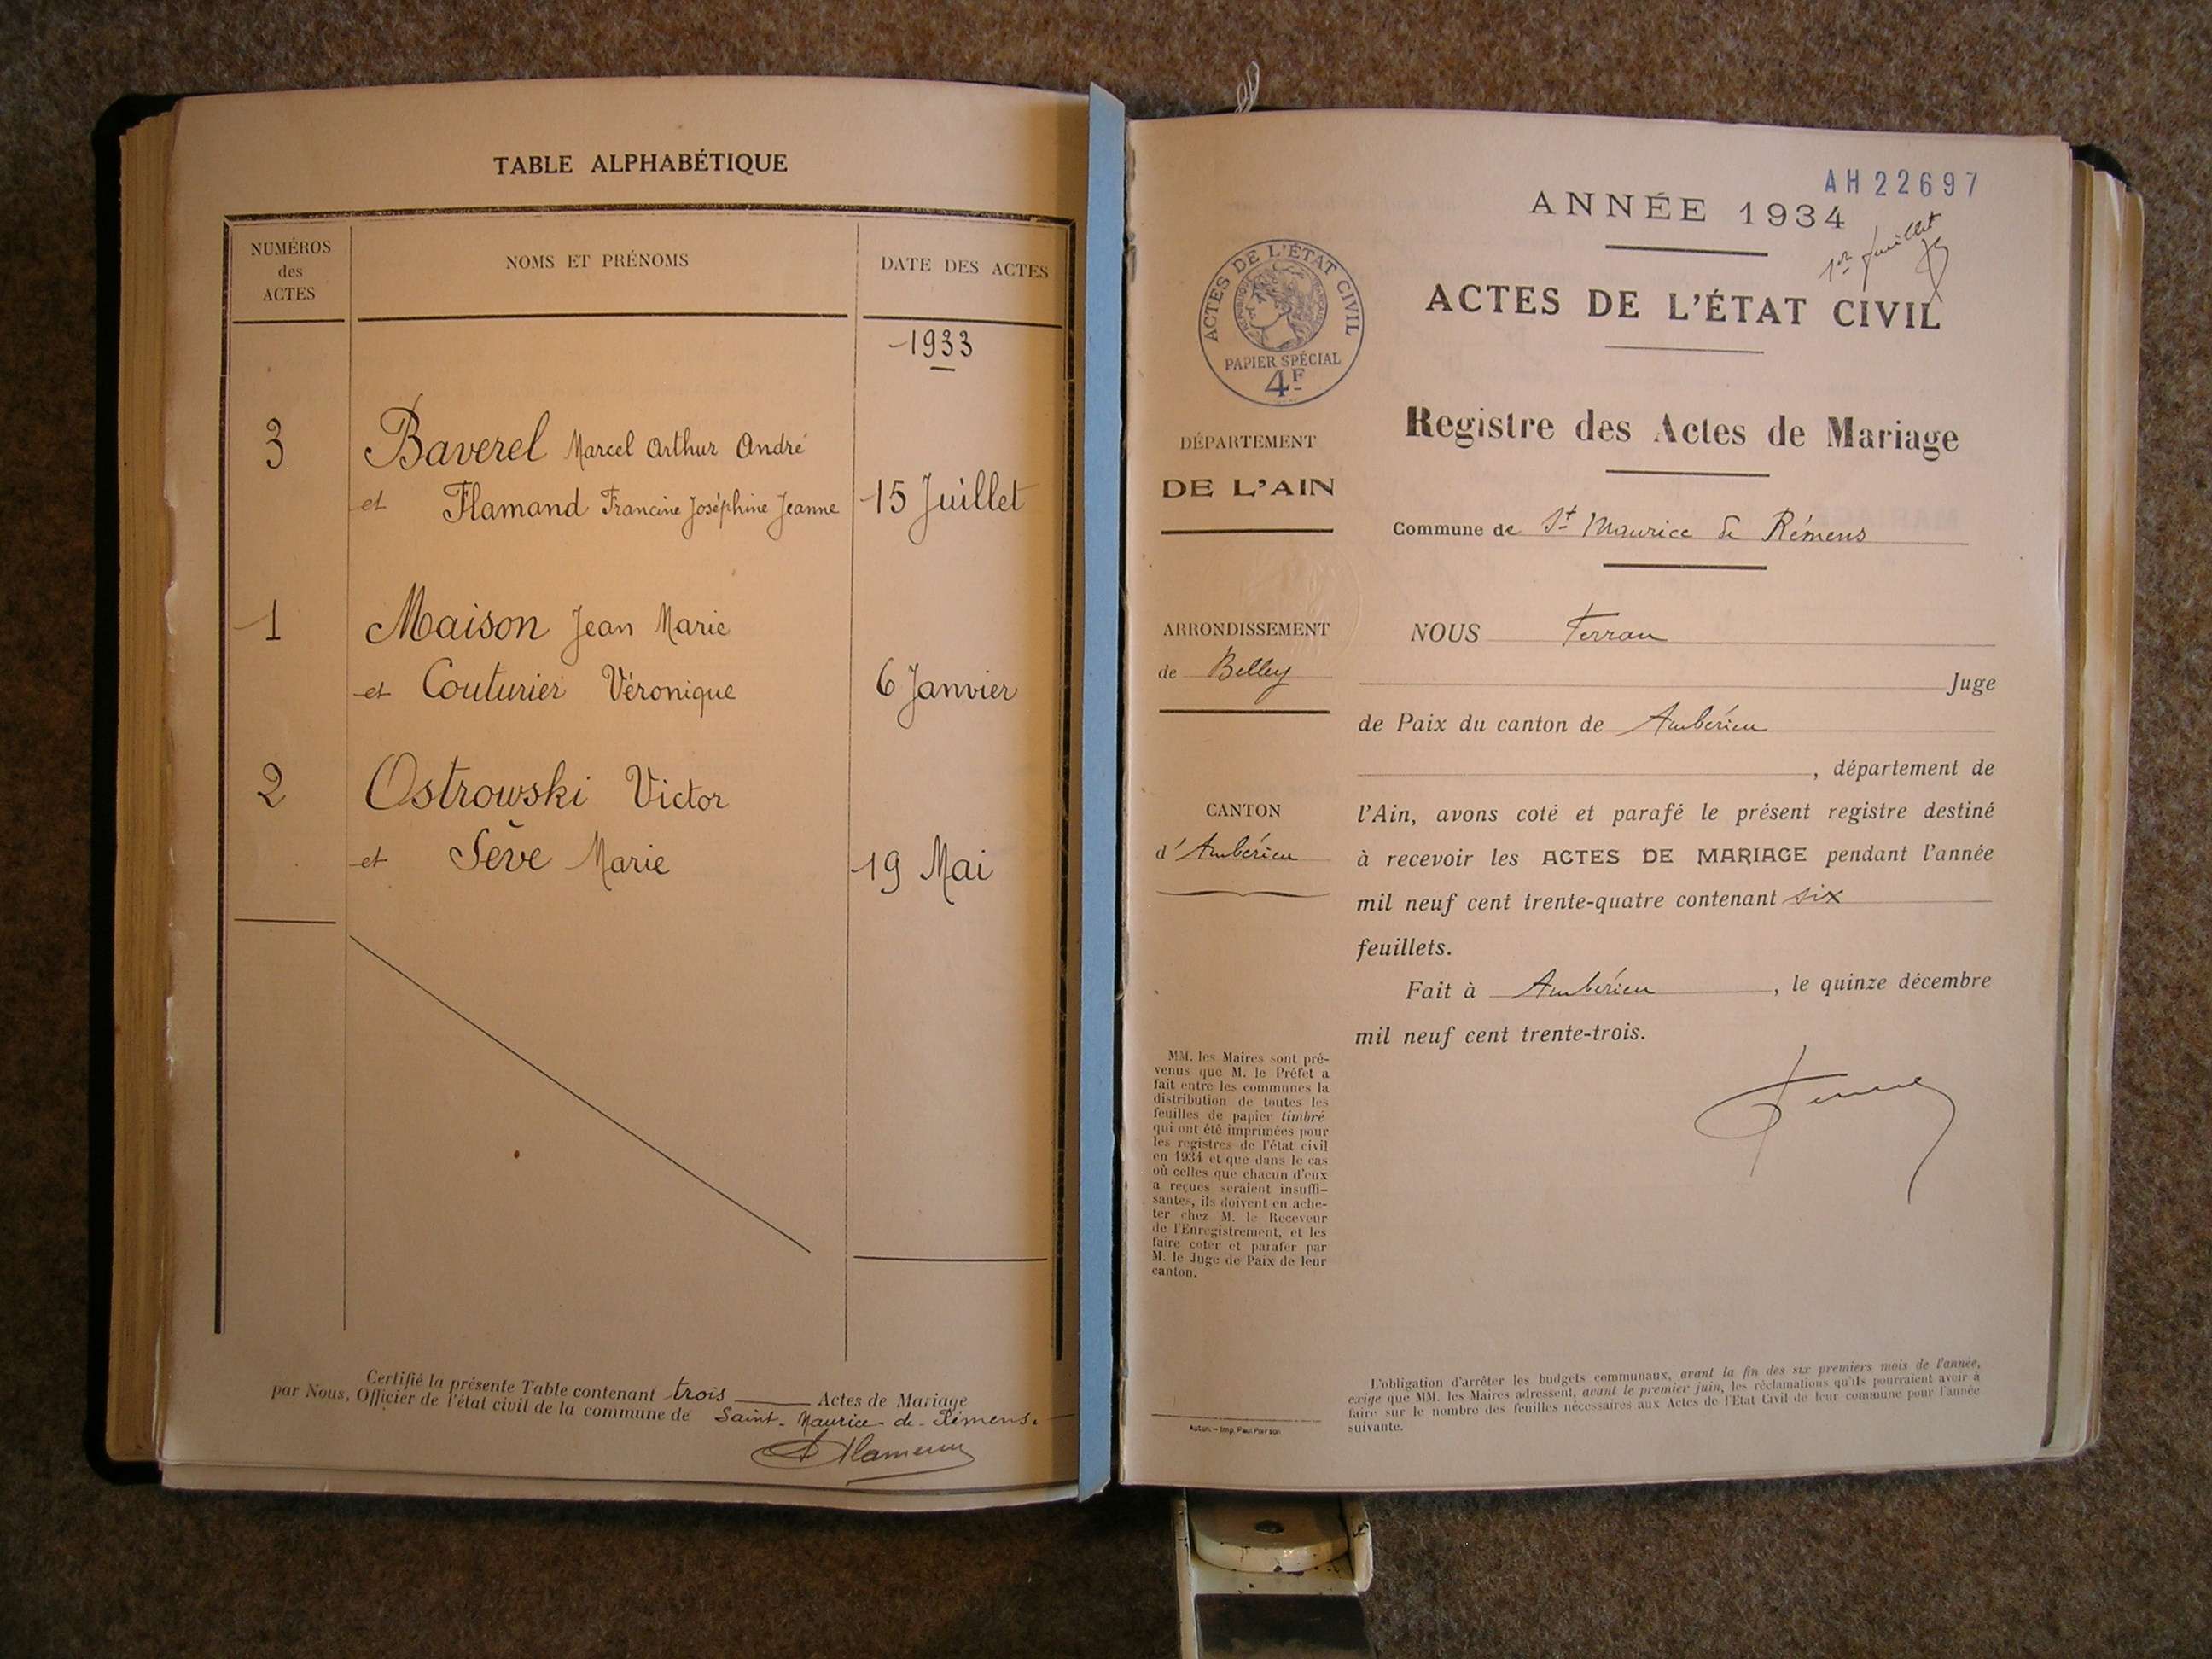 TABLE ALPHABÉTIQUE
NUMÉROS
des
ACTES
NOMS ET PRÉNOMS
DATE DES ACTES
1933
3
Baverel Marcel Arthur André
et Flamand Francine Joséphine Jeanne
15 Juillet
1
Maison Jean Marie
et Couturier Véronique
6 Janvier
2
Ostrowski Victor
et Sève Marie
19 Mai
Certifié la présente Table contenant trois Actes de Mariage
par Nous, Officier de l'état civil de la commune de Saint-Maurice-de-Rémens.
AH22697
ANNÉE 1934
1er feuillet
ACTES DE L'ÉTAT CIVIL
PAPIER SPÉCIAL
4F
ACTES DE L'ÉTAT CIVIL
Registre des Actes de Mariage
Commune de St Maurice de Rémens
DÉPARTEMENT
DE L'AIN
ARRONDISSEMENT
de Belley
CANTON
d'Ambérieu
NOUS Ferran
Juge
de Paix du canton de Ambérieu
, département de
l'Ain, avons coté et parafé le présent registre destiné
à recevoir les ACTES DE MARIAGE pendant l'année
mil neuf cent trente-quatre contenant six
feuillets.
Fait à Ambérieu, le quinze décembre
mil neuf cent trente-trois.
MM. les Maires sont pré-
venus que M. le Préfet a
fait entre les communes la
distribution de toutes les
feuilles de papier timbré
qui ont été imprimées pour
les registres de l'état civil
en 1934 et que dans le cas
où celles que chacun d'eux
a reçues seraient insuffi-
santes, ils doivent en ache-
ter chez M. le Receveur
de l'Enregistrement, et les
faire coter et parafer par
M. le Juge de Paix de leur
canton.
L'obligation d'arrêter les budgets communaux, avant la fin des six premiers mois de l'année,
exige que MM. les Maires adressent, avant le premier juin, les réclamations qu'ils pourraient avoir à
faire sur le nombre des feuilles nécessaires aux Actes de l'Etat Civil de leur commune pour l'année
suivante.